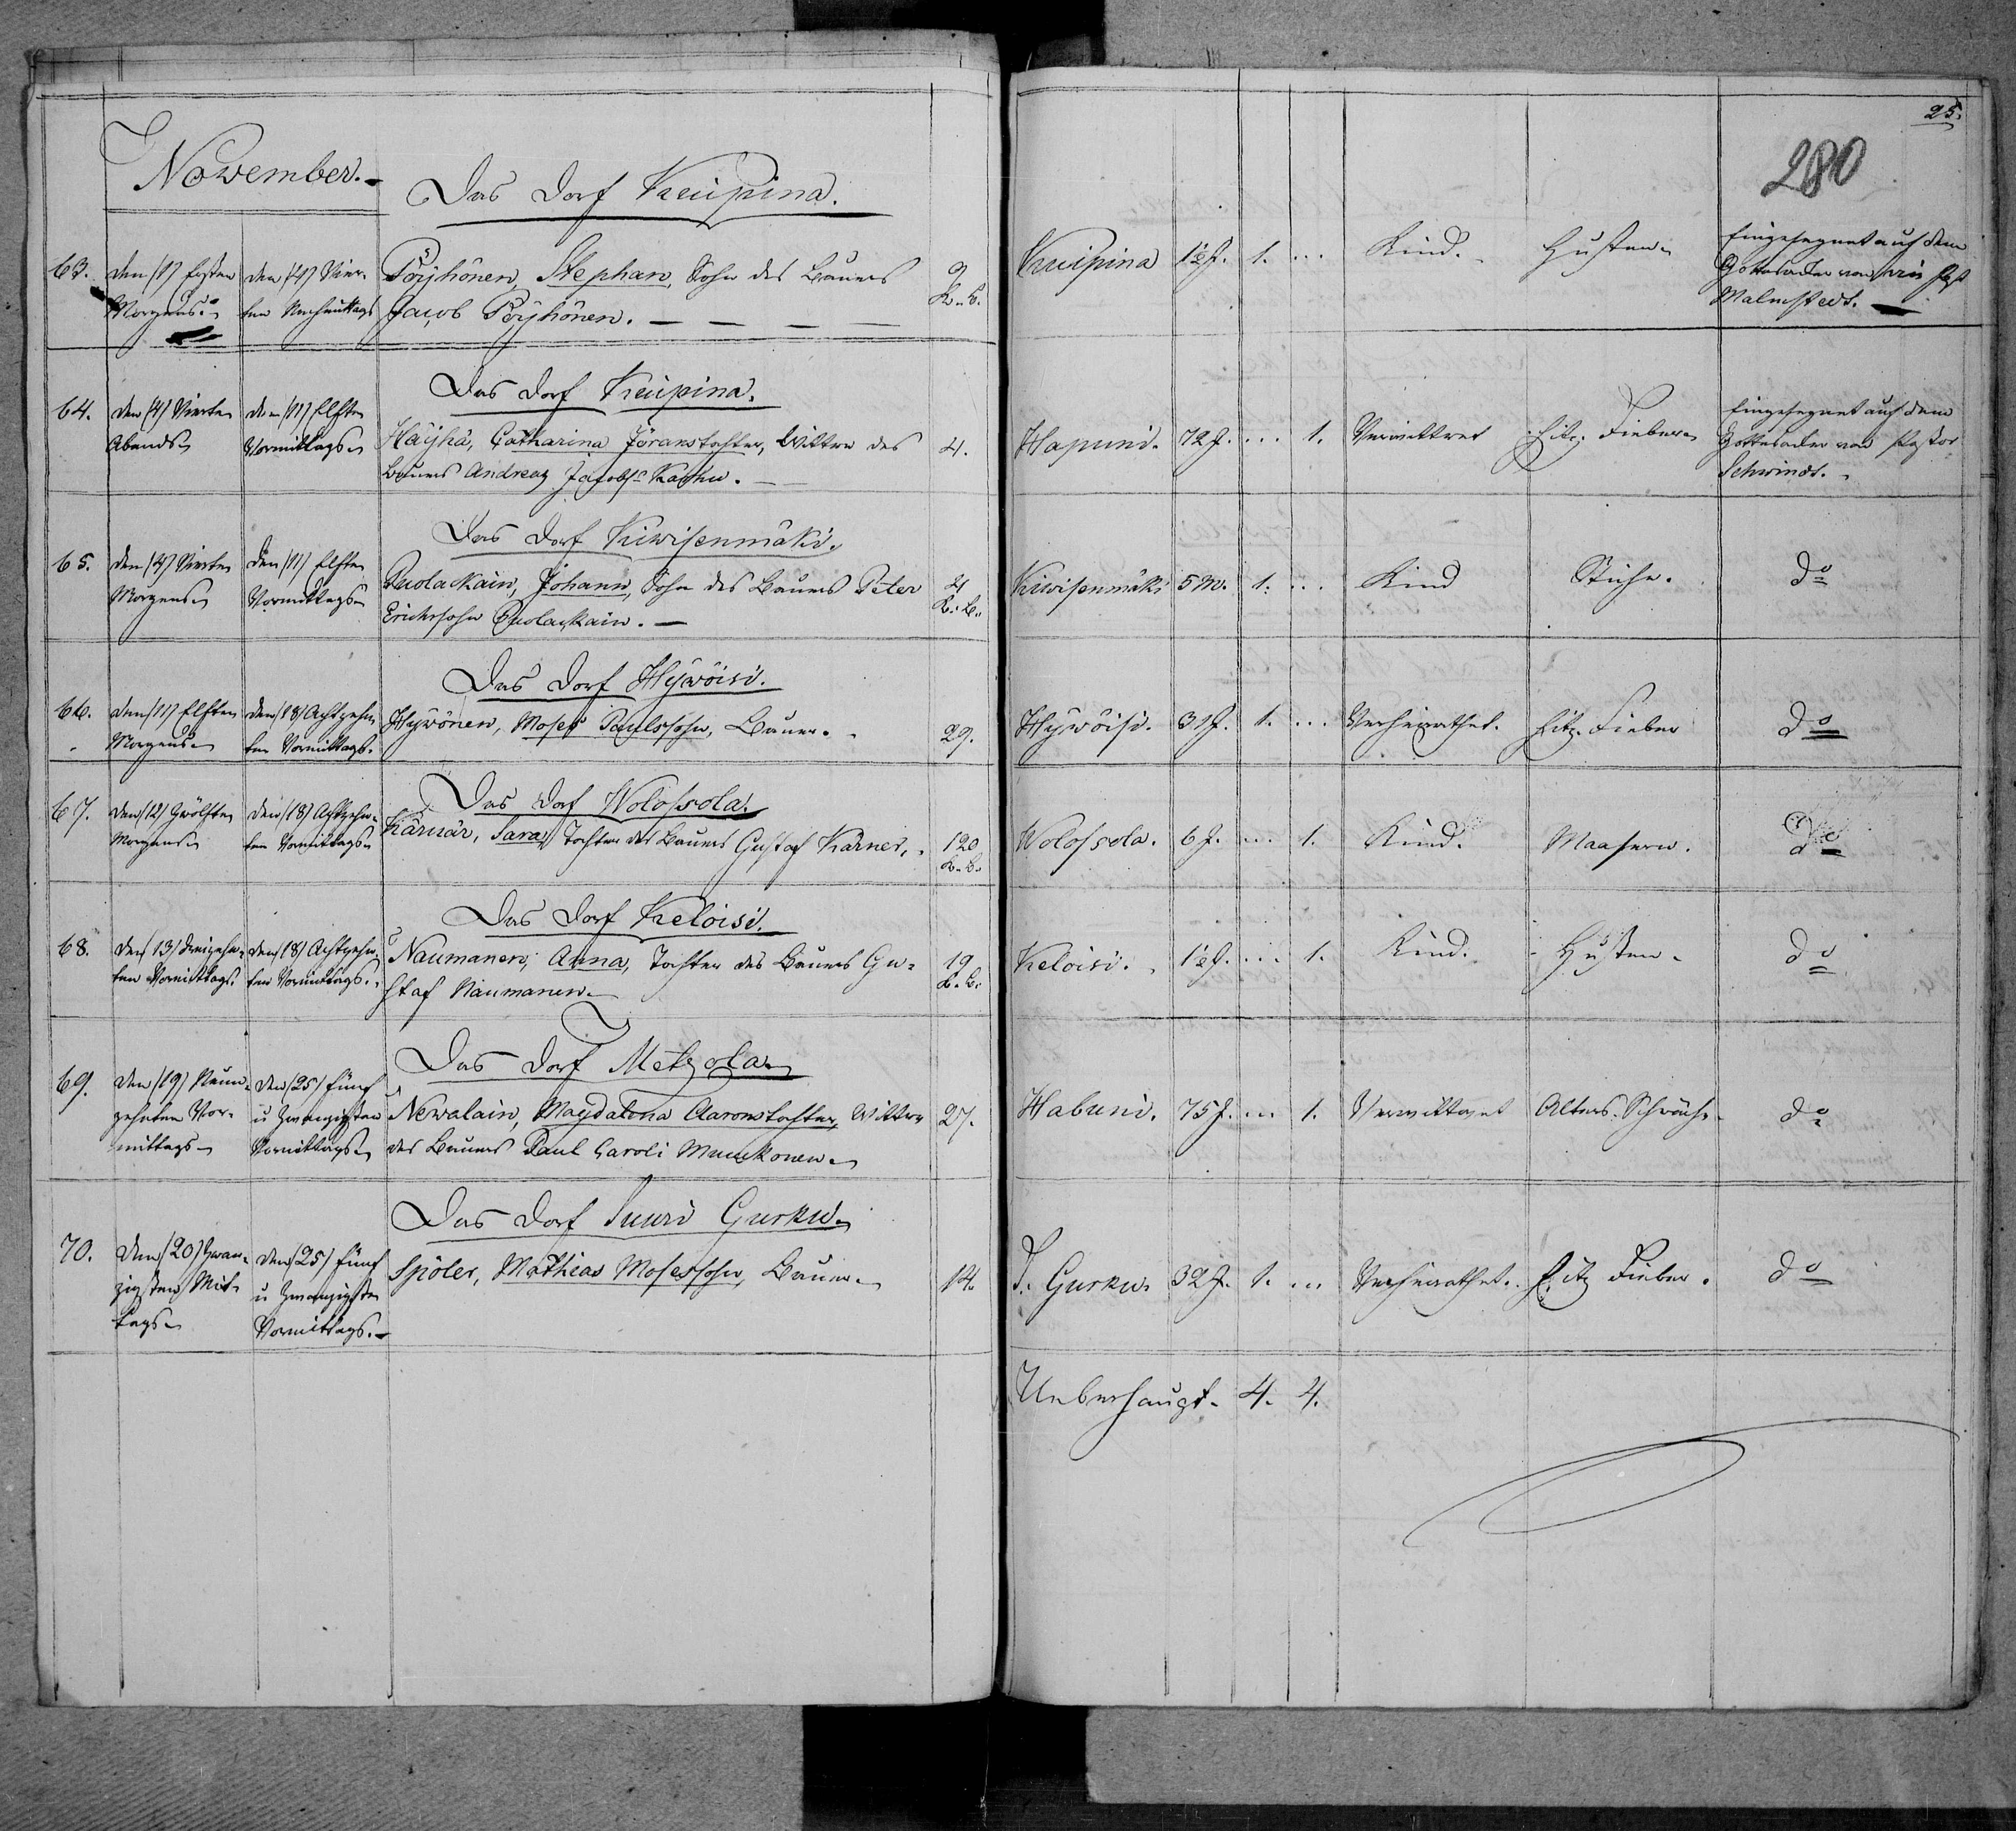 25.
280
November.
Das Dorf Kuipina.
63. den /1/ Ersten Morgens. den /4/ Vierten Nachmittags Pöyhönen, Stephan, Sohn des Bauers Jacob Pöyhönen. 9 K. B. Kuipina 1½ J. 1. ... Kind. Husten. Eingesegnet auf dem Gottesacker von Malmstedt.
Das Dorf Kuipina.
64. den /4/ Vierten Abends den /11/ Elften Vormittags Häyhä, Catharina Jöranstochter, Wittwe des Bauers Andreas Jacobs. Karhu. 4. Hapuni. 72 J. ... 1. Verwittwet hitz. Fieber Eingesegnet auf dem Gottesacker von Pastor Schwindt.
Das Dorf Kiwisenmäki.
65. den /4/ Vierten Morgens den /11/ Elften Vormittags Puolackain, Johann, Sohn des Bauers Peter Erichsohn Puolackain. 4 K. B. Kiwisenmäki 5 M. 1. ... Kind do
Das Dorf Hywöisi.
66. den /11/ Elften Morgens den /18/ Achtzehnten Vormittags. Hywönen, Moses Paulssohn, Bauer. 29. Hywöisi. 31 J. 1. ... Verheirathet. hitz. Fieber do
Das Dorf Wolossola.
67. den /12/ Zwölften Morgens den /18/ Achtzehnten Vormittags Kärnär, Sara, Tochter des Bauers Gustaf Kärner. 120 K. B. Wolossola. 6 J. ... 1. Kind. Maasern. do
Das Dorf Keloisi.
68. den /13/ Dreizehnten Vormittags. den /18/ Achtzehnten Vormittags. Naumanen, Anna, Tochter des Bauers Gustaf Naumanen. 19 K. B. Keloisi. 1½ J. ... 1. Kind. Husten. do
Das Dorf Metzola
69. den /19/ Neunzehnten Vormittags den /25/ Fünf u Zwanzigsten Vormittags Newalain, Magdalena Aaronstochter, Wittwe des Bauers Paul Caroli Muukonen. 27. Habuni. 75 J. ... 1. Verwittwet Alters. Schwäche do
Das Dorf Suuri Gurku.
70. den /20/ Zwanzigsten Mittags den /25/ Fünf u Zwanzigsten Vormittags. Spöler, Mathias Mosessohn, Bauer. 14. S. Gurku. 32 J. 1. ... Verheirathet. hitz Fieber. do
Ueberhaupt. 4. 4.